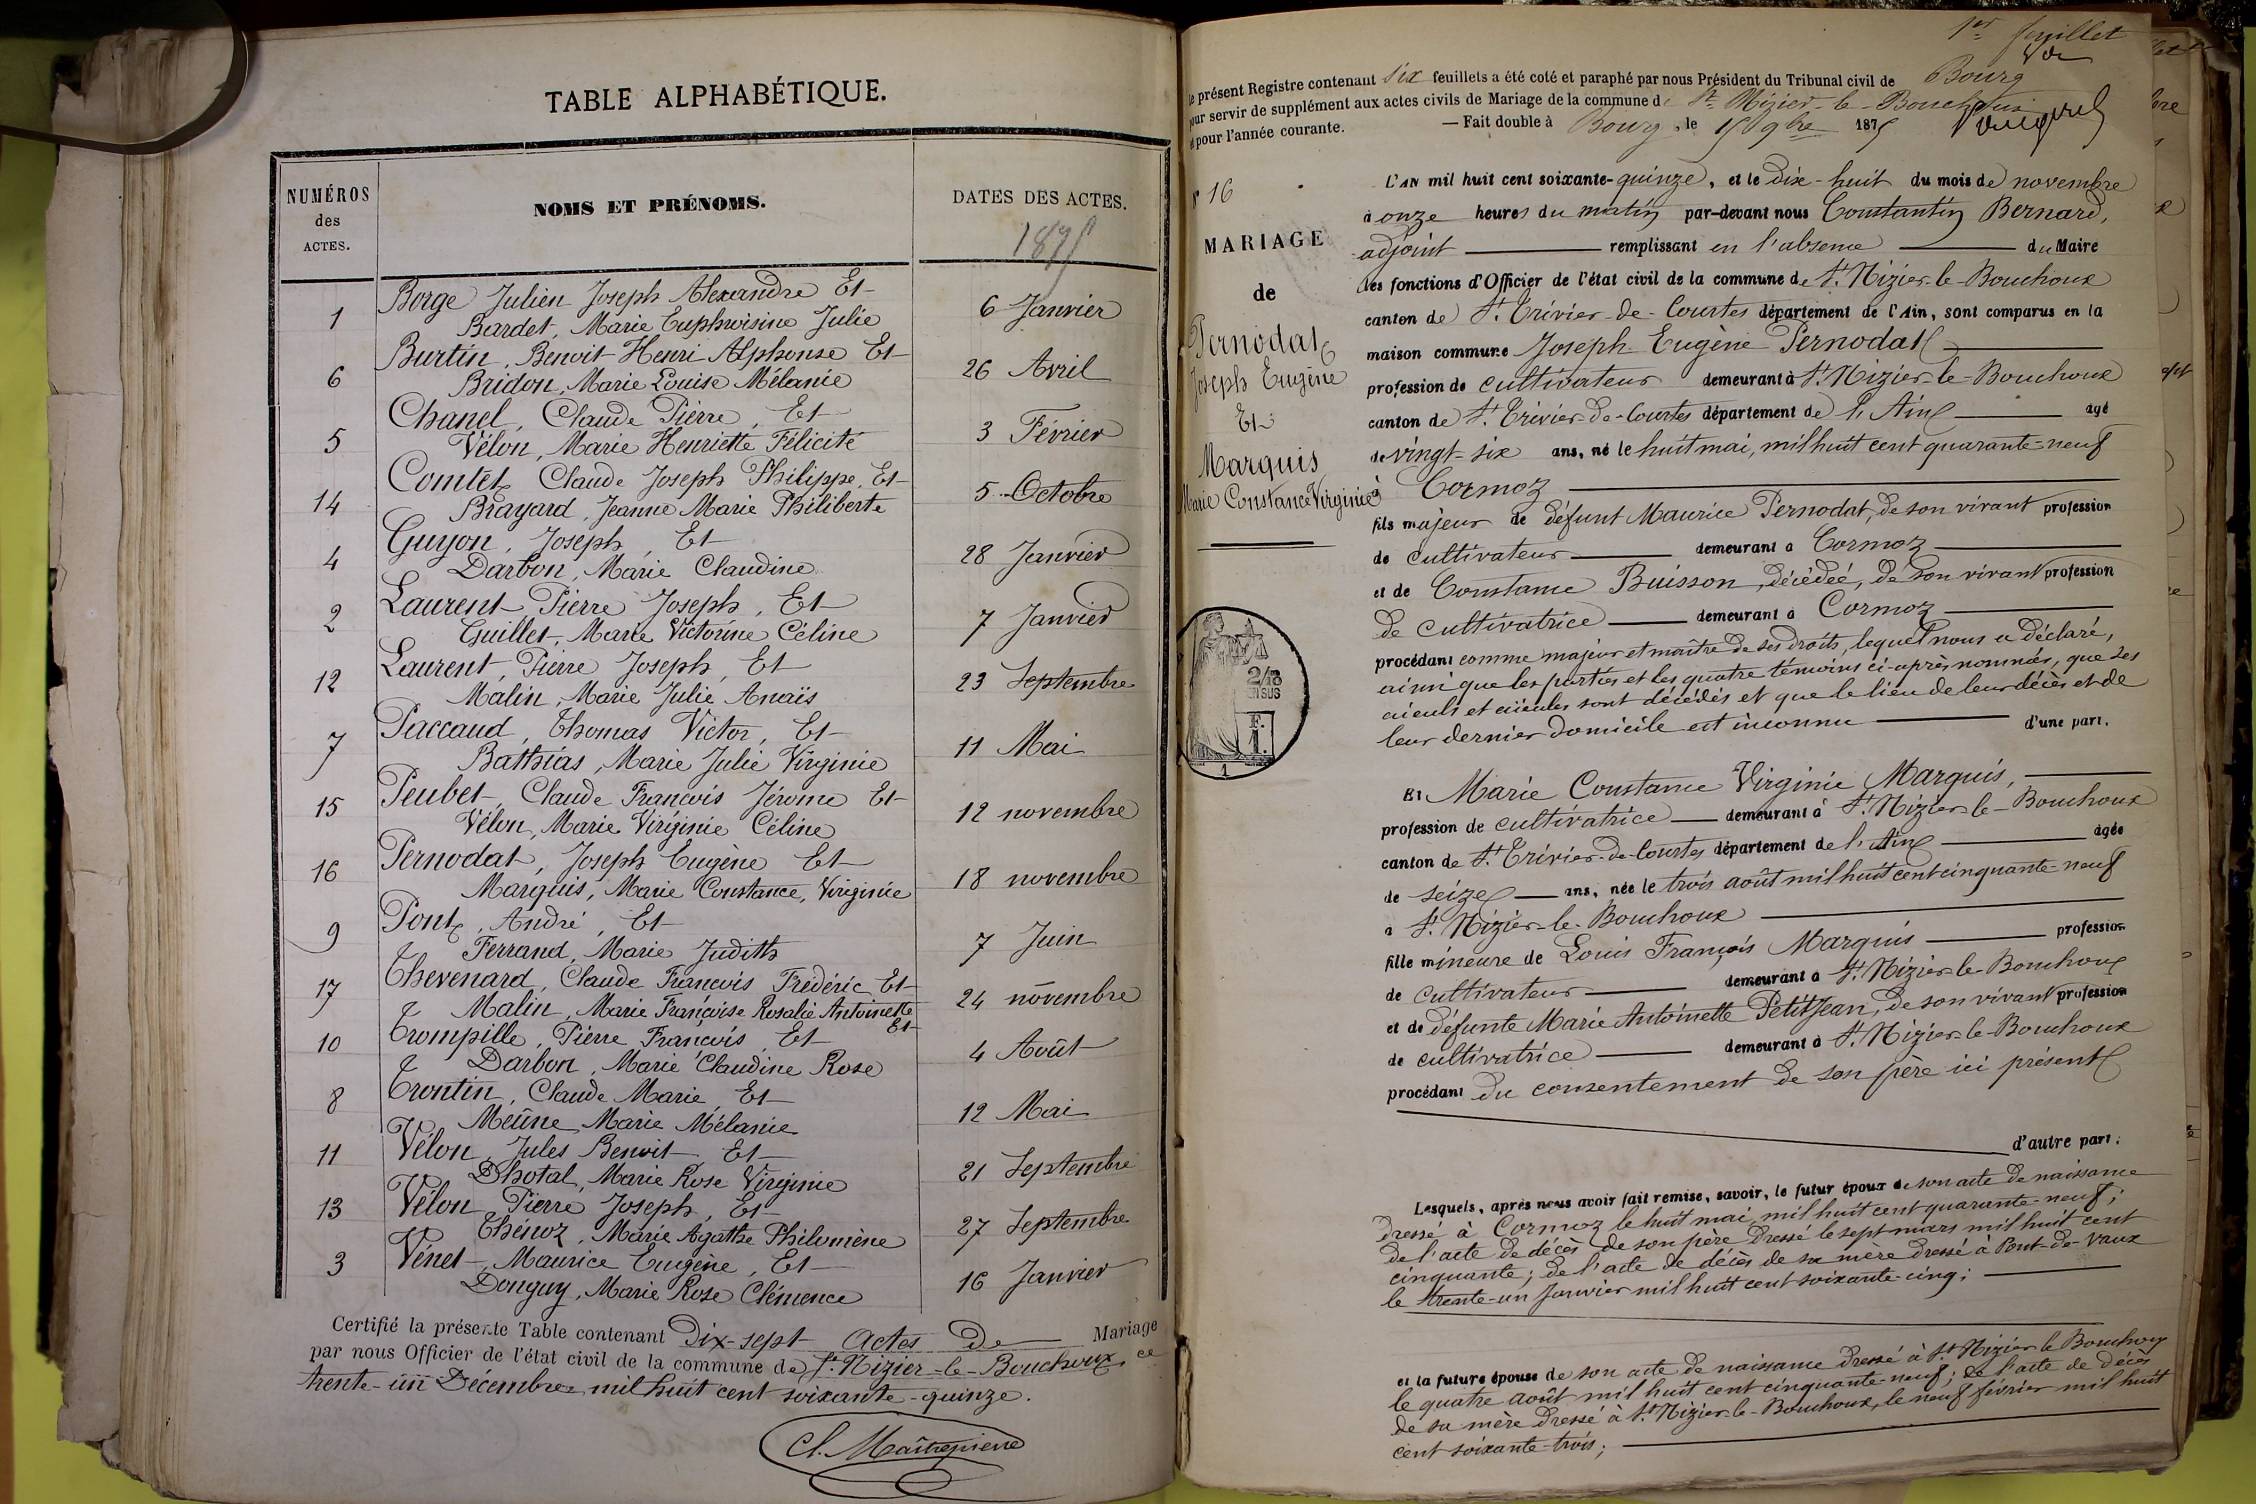 TABLE ALPHABÉTIQUE.
NUMÉROS des ACTES.
NOMS ET PRÉNOMS.
DATES DES ACTES.
1875
1 Borge Julien Joseph Alexandre Et 6 Janvier
Bardet, Marie Euphroisine Julie
6 Burtin, Benoit Henri Alphonse Et 26 Avril
Bridon, Marie Louise Mélanie
5 Chanel, Claude Pierre, Et 3 Février
Vélon, Marie Henriette Félicité
14 Comtet Claude Joseph Philippe, Et 5 Octobre
Brayard, Jeanne Marie Philiberte
4 Guyon, Joseph, Et 28 Janvier
Darbon, Marie Claudine
2 Laurent Pierre Joseph, Et 7 Janvier
Guillet, Marie Victorine Céline
12 Laurent, Pierre Joseph, Et 23 Septembre
Malin, Marie Julie Anaïs
7 Paccaud, Thomas Victor, Et 11 Mai
Bathias, Marie Julie Virginie
15 Peubet, Claude François Jérome Et 12 novembre
Vélon, Marie Virginie Céline
16 Pernodat, Joseph Eugène Et 18 novembre
Marquis, Marie Constance, Virginie
9 Pont, André, Et 7 Juin
Ferrand, Marie Judith
17 Thevenard, Claude François Frédéric Et 24 novembre
Malin, Marie Françoise Rosalie Antoinette
Et
10 Trompille, Pierre François, Et 4 Août
Darbon, Marie Claudine Rose
8 Trontin, Claude Marie, Et 12 Mai
Meûne Marie Mélanie
11 Vélon, Jules Benoit Et 21 Septembre
Dhotal, Marie Rose Virginie
13 Vélon Pierre Joseph, Et 27 Septembre
Thénoz, Marie Agathe Philomène
3 Vénet, Maurice Eugène, Et 16 Janvier
Donguy, Marie Rose Clémence
Certifié la présente Table contenant Dix-sept Actes De Mariage
par nous Officier de l'état civil de la commune de St. Nizier-le-Bouchoux, ce
trente-un Décembre mil huit cent soixante-quinze.
Cl. Maîtrepierre
1er feuillet
Le présent Registre contenant six feuillets a été coté et paraphé par nous Président du Tribunal civil de Bourg
pour servir de supplément aux actes civils de Mariage de la commune de St. Nizier-le-Bouchoux
et pour l'année courante. — Fait double à Bourg, le 15 9bre 1875
N° 16
MARIAGE
de
Pernodat
Joseph Eugène
Et
Marquis
Marie Constance Virginie
L'AN mil huit cent soixante-quinze, et le dix-huit du mois de novembre
à onze heures du matin par-devant nous Constantin Bernard,
adjoint remplissant en l'absence du Maire
les fonctions d'Officier de l'état civil de la commune de St. Nizier-le-Bouchoux
canton de St. Trivier-de-Courtes département de l'Ain, sont comparus en la
maison commune Joseph Eugène Pernodat
profession de cultivateur demeurant à St. Nizier-le-Bouchoux
canton de St. Trivier-de-Courtes département de l'Ain agé
de vingt-six ans, né le huit mai, mil huit cent quarante-neuf
à Cormoz
fils majeur de défunt Maurice Pernodat, de son vivant profession
de cultivateur demeurant à Cormoz
et de Constance Buisson, décédée, de son vivant profession
de cultivatrice demeurant à Cormoz
procédant comme majeur et maître de ses droits, lequel nous a déclaré,
ainsi que les parties et les quatre témoins ci-après nommés, que ses
aïeuls et aïeules sont décédés et que le lieu de leur décès et de
leur dernier domicile est inconnu d'une part.
Et Marie Constance Virginie Marquis,
profession de cultivatrice demeurant à St. Nizier-le-Bouchoux
canton de St. Trivier-de-Courtes département de l'Ain agée
de seize ans, née le trois août mil huit cent cinquante-neuf
à St. Nizier-le-Bouchoux
fille mineure de Louis François Marquis profession
de cultivateur demeurant à St. Nizier-le-Bouchoux
et de défunte Marie Antoinette PetitJean, de son vivant profession
de cultivatrice demeurant à St. Nizier-le-Bouchoux
procédant du consentement de son père ici présent
d'autre part.
Lesquels, après nous avoir fait remise, savoir, le futur époux de son acte de naissance
dressé à Cormoz le huit mai mil huit cent quarante-neuf;
de l'acte de décès de son père dressé le sept mars mil huit cent
cinquante; de l'acte de décès de sa mère dressé à Pont-de-Vaux
le trente-un janvier mil huit cent soixante-cinq;
et la future épouse de son acte de naissance dressé à St. Nizier-le-Bouchoux
le quatre août mil huit cent cinquante-neuf; de l'acte de décès
de sa mère dressé à St. Nizier-le-Bouchoux, le neuf février mil huit
cent soixante-trois;